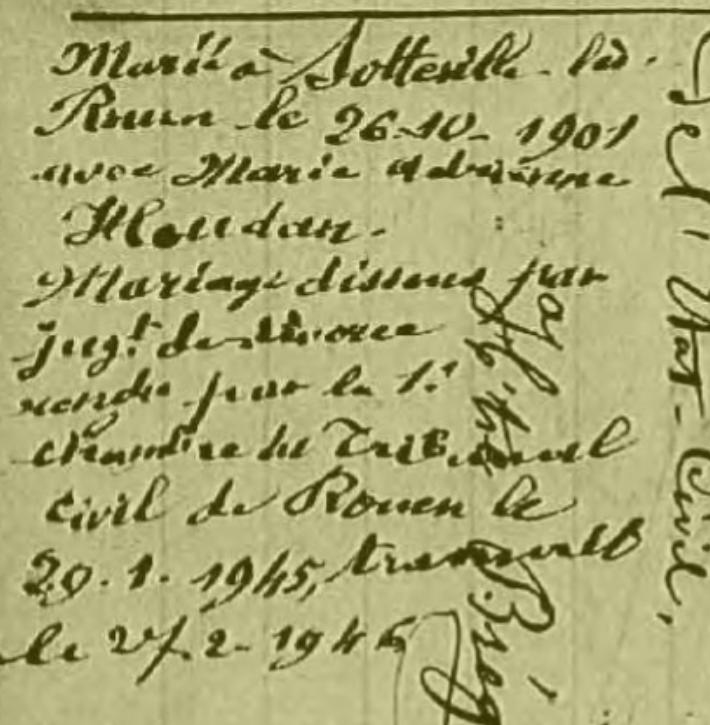 Marié à Sotteville-les-
Rouen le 26-10-1901
avec Marie Adrienne
Houdan.
Mariage dissous par
jugt de divorce
rendu par la 1e
chambre du Tribunal
civil de Rouen le
20.1.1945, transcrit
le 27.2-1946
Etat-Civil,